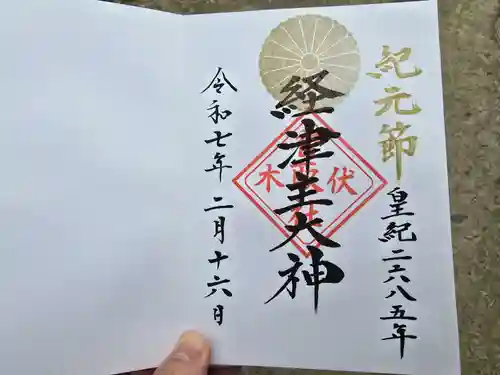 紀元節
皇紀二六八五年
経津主大神
伏
木
令和七年二月十六日